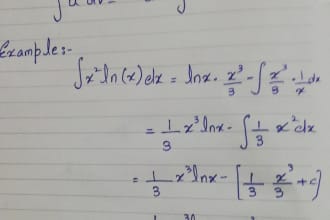 Example:-
∫x² ln(x) dx = lnx · x³/3 - ∫ x³/3 · 1/x dx
= 1/3 x³ lnx - ∫ 1/3 x² dx
= 1/3 x³ lnx - [1/3 x³/3 + c]